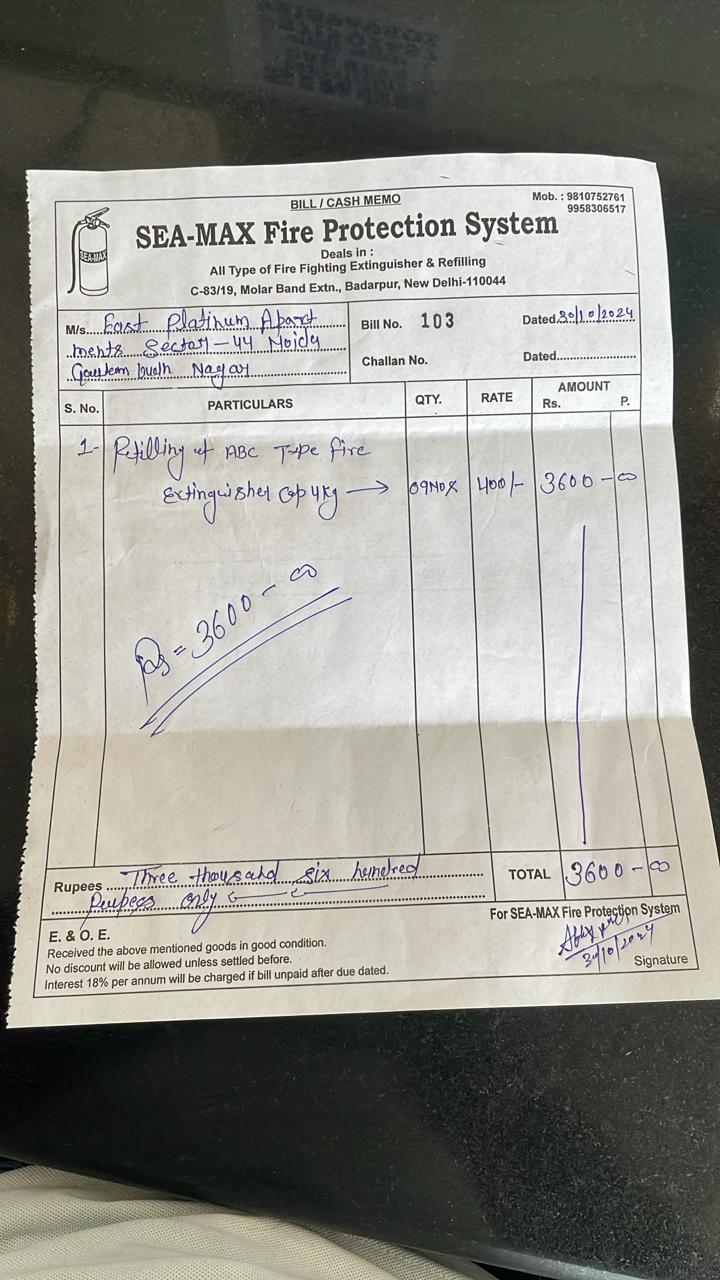 BILL / CASH MEMO
Mob. : 9810752761
9958306517
SEA-MAX
SEA-MAX Fire Protection System
Deals in :
All Type of Fire Fighting Extinguisher & Refilling
C-83/19, Molar Band Extn., Badarpur, New Delhi-110044
M/s. East Platinum Apart
ments Sector-44 Noida
Gautam budh Nagar
Bill No. 103
Dated 30/10/2024
Challan No.
Dated
S. No. PARTICULARS QTY. RATE AMOUNT
Rs. P.
1- Refilling of ABC Type fire
Extinguisher Cap 4kg → 09Nos 400/- 3600-00
Rs = 3600-00
Rupees Three thousand six hundred
Rupees only
TOTAL 3600-00
E. & O. E.
For SEA-MAX Fire Protection System
Received the above mentioned goods in good condition.
No discount will be allowed unless settled before.
Interest 18% per annum will be charged if bill unpaid after due dated.
30/10/2024
Signature